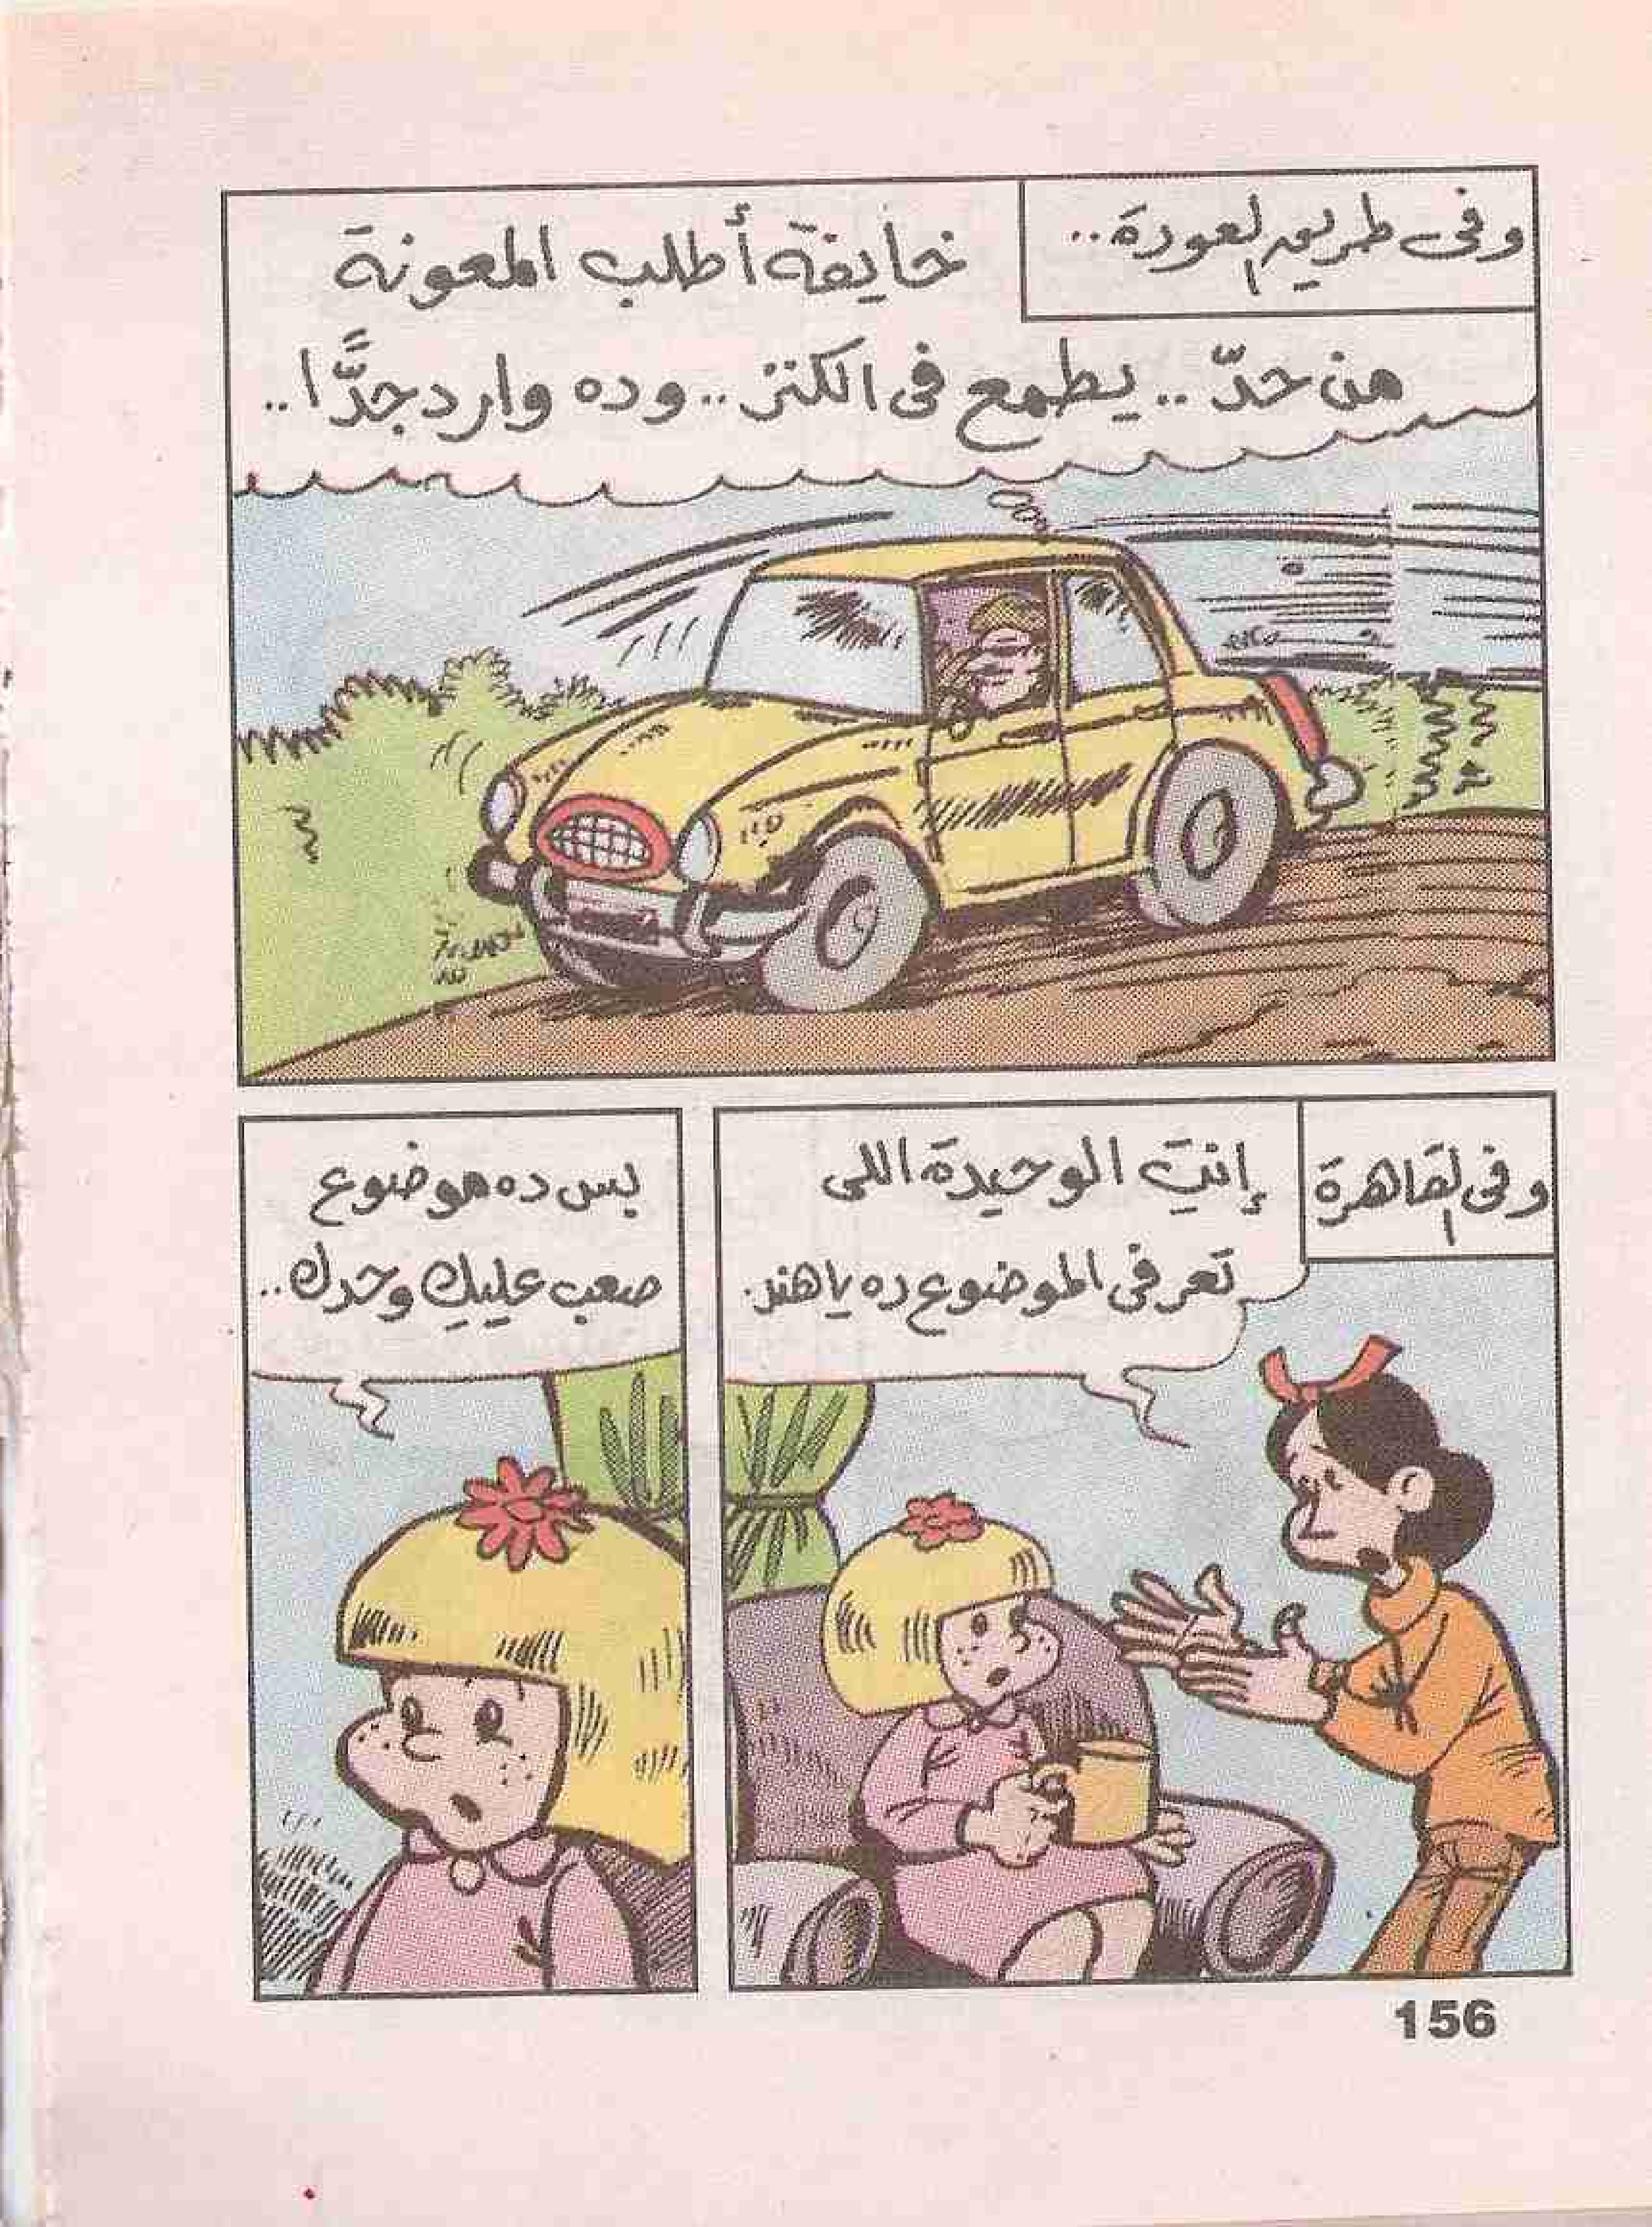 وفى طريق العودة..
خايفة أطلب المعونة
من حدّ.. يطمع فى الكنز.. وده وارد جدًّا..
وفى القاهرة
إنتِ الوحيدة اللى
تعرفى الموضوع ده يا هند.
بس ده موضوع
صعب عليكِ وحدك..
156